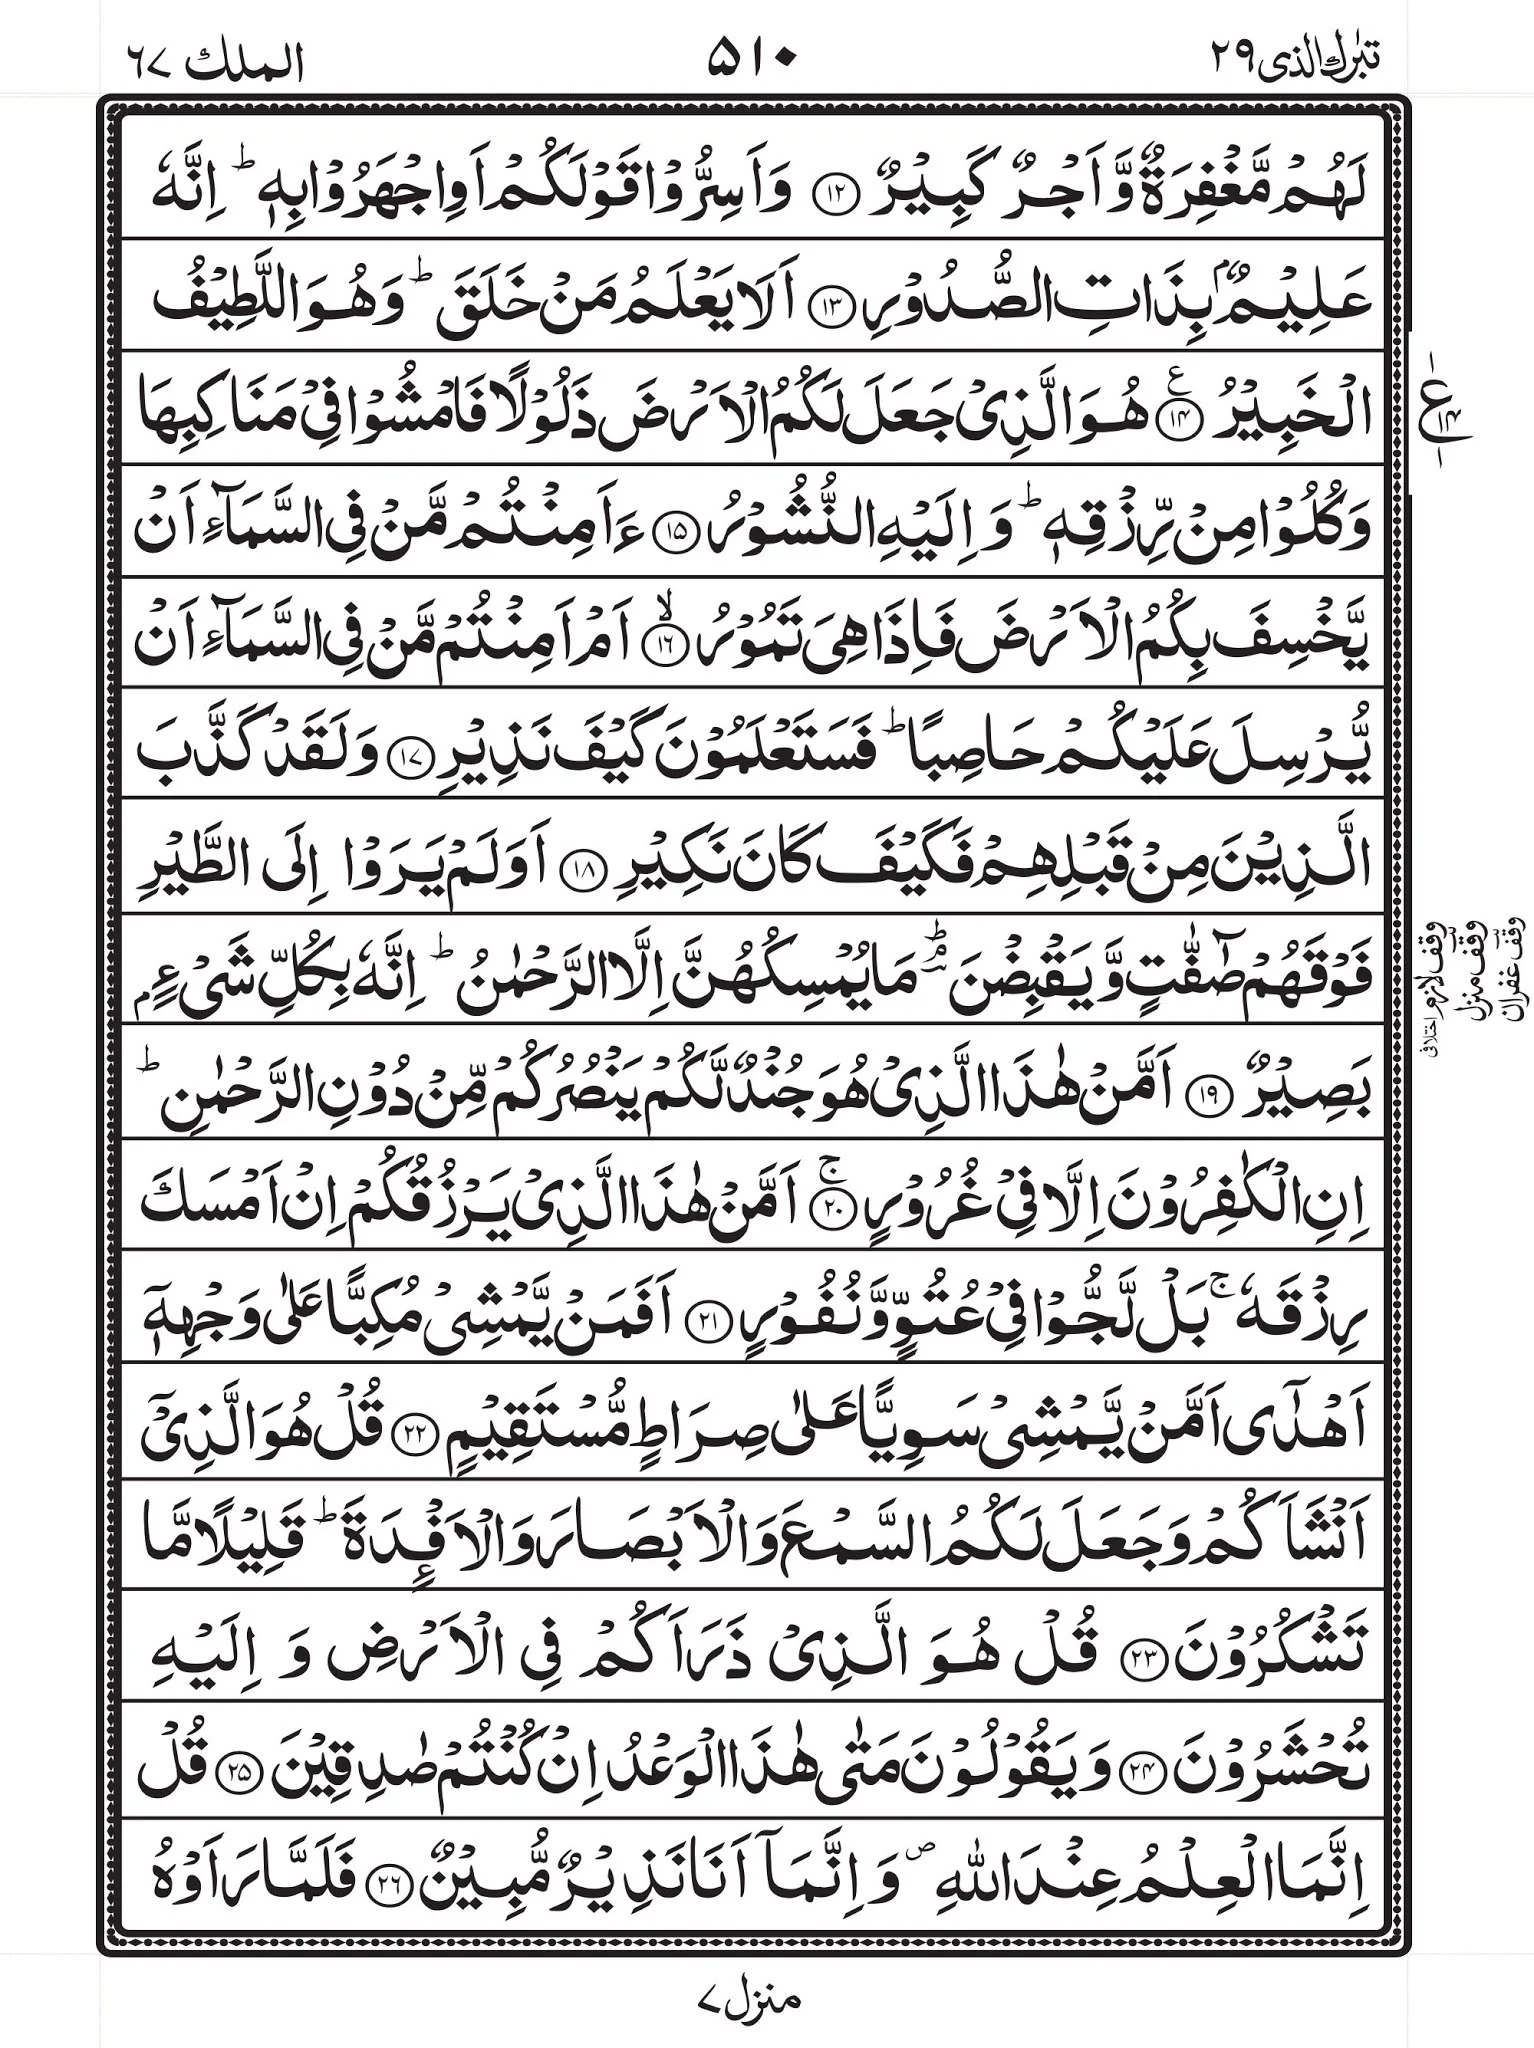 تبٰرك الذی ۲۹
۵۱۰
الملك ۶۷
لَهُمْ مَّغْفِرَةٌ وَّ اَجْرٌ كَبِیْرٌ ۝۱۲ وَ اَسِرُّوْا قَوْلَكُمْ اَوِ اجْهَرُوْا بِهٖ ؕ اِنَّهٗ
عَلِیْمٌۢ بِذَاتِ الصُّدُوْرِ ۝۱۳ اَلَا یَعْلَمُ مَنْ خَلَقَ ؕ وَ هُوَ اللَّطِیْفُ
الْخَبِیْرُ ۝۱۴ ع هُوَ الَّذِیْ جَعَلَ لَكُمُ الْاَرْضَ ذَلُوْلًا فَامْشُوْا فِیْ مَنَاكِبِهَا
وَ كُلُوْا مِنْ رِّزْقِهٖ ؕ وَ اِلَیْهِ النُّشُوْرُ ۝۱۵ ءَاَمِنْتُمْ مَّنْ فِی السَّمَآءِ اَنْ
یَّخْسِفَ بِكُمُ الْاَرْضَ فَاِذَا هِیَ تَمُوْرُ ۝۱۶ ۙ اَمْ اَمِنْتُمْ مَّنْ فِی السَّمَآءِ اَنْ
یُّرْسِلَ عَلَیْكُمْ حَاصِبًا ؕ فَسَتَعْلَمُوْنَ كَیْفَ نَذِیْرِ ۝۱۷ وَ لَقَدْ كَذَّبَ
الَّذِیْنَ مِنْ قَبْلِهِمْ فَكَیْفَ كَانَ نَكِیْرِ ۝۱۸ اَوَ لَمْ یَرَوْا اِلَی الطَّیْرِ
فَوْقَهُمْ صٰٓفّٰتٍ وَّ یَقْبِضْنَ ؔۘؕ مَا یُمْسِكُهُنَّ اِلَّا الرَّحْمٰنُ ؕ اِنَّهٗ بِكُلِّ شَیْءٍۭ
بَصِیْرٌ ۝۱۹ اَمَّنْ هٰذَا الَّذِیْ هُوَ جُنْدٌ لَّكُمْ یَنْصُرُكُمْ مِّنْ دُوْنِ الرَّحْمٰنِ ؕ
اِنِ الْكٰفِرُوْنَ اِلَّا فِیْ غُرُوْرٍ ۝۲۰ ۚ اَمَّنْ هٰذَا الَّذِیْ یَرْزُقُكُمْ اِنْ اَمْسَكَ
رِزْقَهٗ ۚ بَلْ لَّجُّوْا فِیْ عُتُوٍّ وَّ نُفُوْرٍ ۝۲۱ اَفَمَنْ یَّمْشِیْ مُكِبًّا عَلٰی وَجْهِهٖۤ
اَهْدٰۤی اَمَّنْ یَّمْشِیْ سَوِیًّا عَلٰی صِرَاطٍ مُّسْتَقِیْمٍ ۝۲۲ قُلْ هُوَ الَّذِیْۤ
اَنْشَاَكُمْ وَ جَعَلَ لَكُمُ السَّمْعَ وَ الْاَبْصَارَ وَ الْاَفْـِٕدَةَ ؕ قَلِیْلًا مَّا
تَشْكُرُوْنَ ۝۲۳ قُلْ هُوَ الَّذِیْ ذَرَاَكُمْ فِی الْاَرْضِ وَ اِلَیْهِ
تُحْشَرُوْنَ ۝۲۴ وَ یَقُوْلُوْنَ مَتٰی هٰذَا الْوَعْدُ اِنْ كُنْتُمْ صٰدِقِیْنَ ۝۲۵ قُلْ
اِنَّمَا الْعِلْمُ عِنْدَ اللّٰهِ ۪ وَ اِنَّمَاۤ اَنَا نَذِیْرٌ مُّبِیْنٌ ۝۲۶ فَلَمَّا رَاَوْهُ
ع ۱ ۱۴ ۱
وقف لازم اختلافی
وقف منزل
وقف غفران
منزل ۷